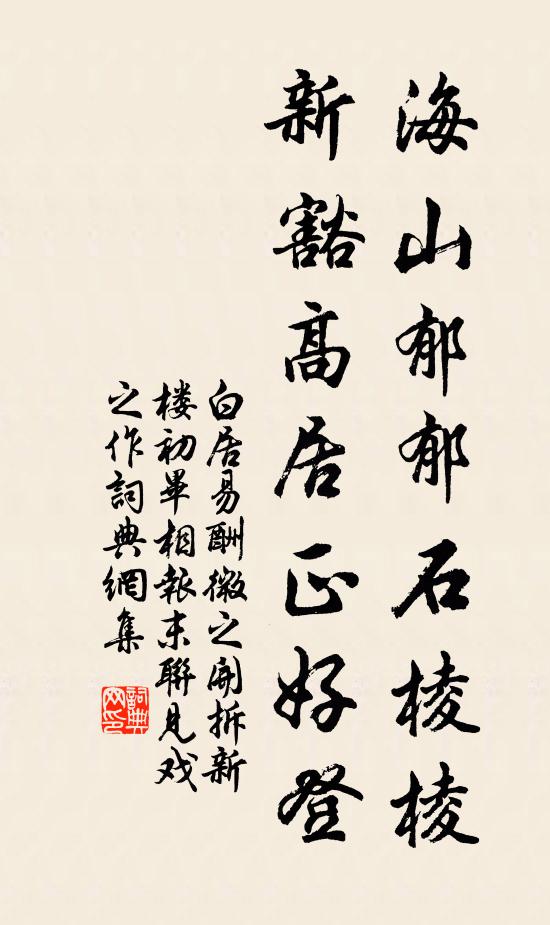 海山郁郁石棱棱
新豁高居正好登
白居易酬微之開拆新
楼初畢相報末聯見戏
之作詞典網集
詞典网印